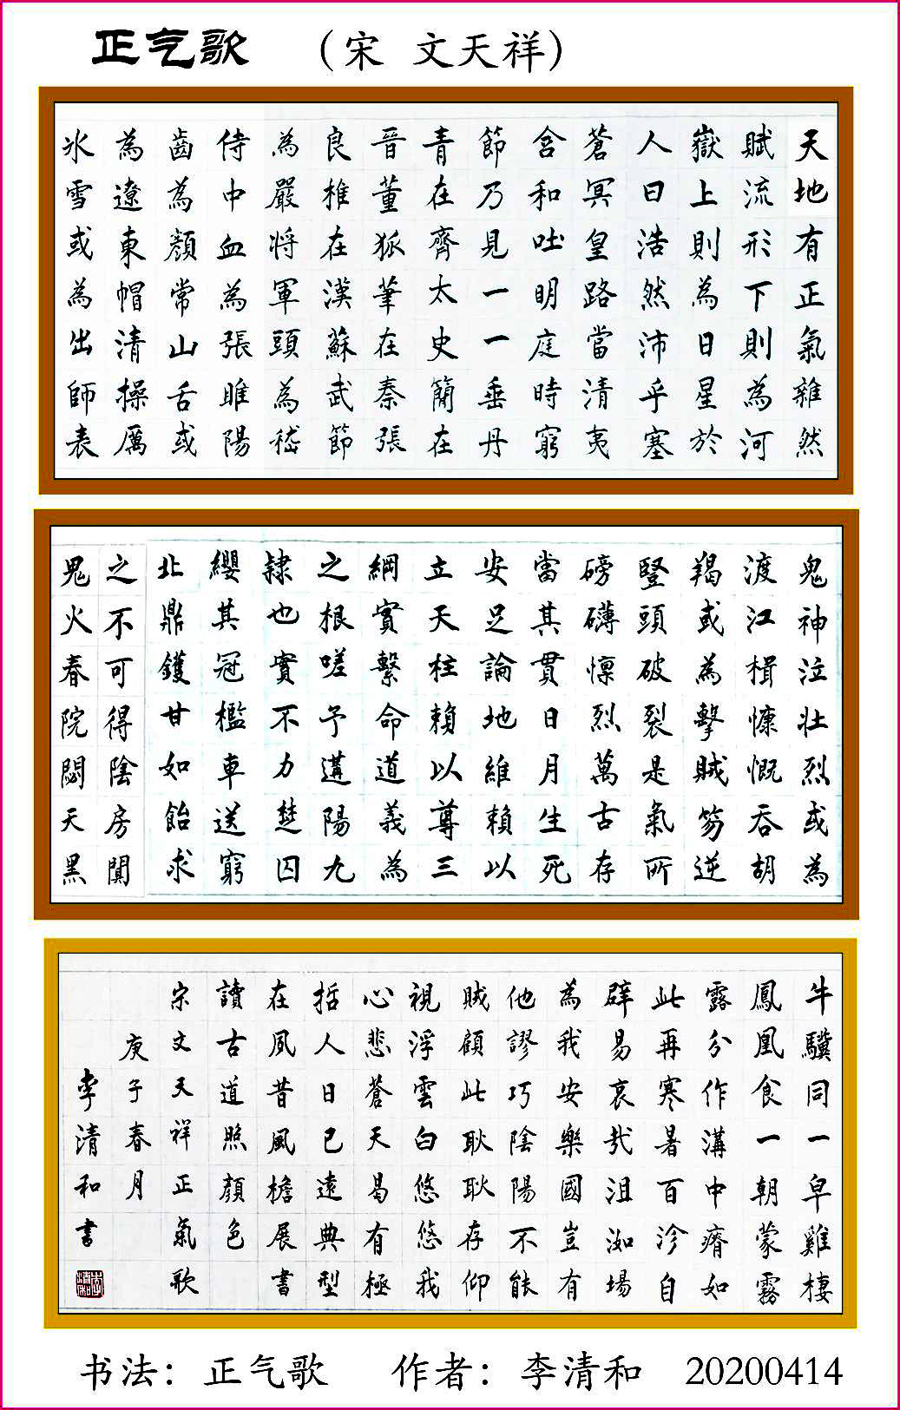 正气歌 （宋 文天祥）
天地有正氣雜然
賦流形下則為河
嶽上則為日星於
人曰浩然沛乎塞
蒼冥皇路當清夷
含和吐明庭時窮
節乃見一一垂丹
青在齊太史簡在
晉董狐筆在秦張
良椎在漢蘇武節
為嚴將軍頭為嵇
侍中血為張睢陽
齒為顏常山舌或
為遼東帽清操厲
冰雪或為出師表
鬼神泣壯烈或為
渡江楫慷慨吞胡
羯或為擊賊笏逆
豎頭破裂是氣所
磅礴懍烈萬古存
當其貫日月生死
安足論地維賴以
立天柱賴以尊三
綱實繫命道義為
之根嗟予遘陽九
隸也實不力楚囚
纓其冠檻車送窮
北鼎鑊甘如飴求
之不可得陰房闃
鬼火春院閟天黑
牛驥同一皁雞棲
鳳凰食一朝蒙霧
露分作溝中瘠如
此再寒暑百沴自
辟易哀哉沮洳場
為我安樂國豈有
他謬巧陰陽不能
賊顧此耿耿存仰
視浮雲白悠悠我
心悲蒼天曷有極
哲人日已遠典型
在夙昔風檐展書
讀古道照顏色
宋文天祥正氣歌
庚子春月
李清和書
书法：正气歌 作者：李清和 20200414